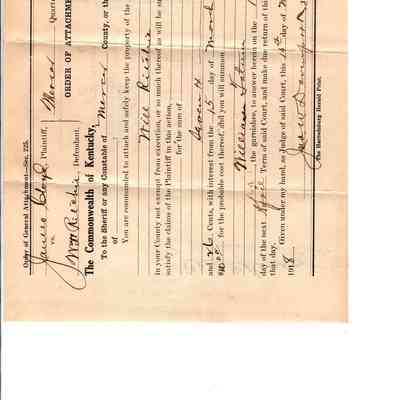 Order of General Attachment—Sec. 225.
James Cloyd, Plaintiff,
vs.
Wm Ritchie, Defendant.
Mercer Quarte
ORDER OF ATTACHME
The Commonwealth of Kentucky,
To the Sheriff or any Constable of Mercer County, or th
of
You are commanded to attach and safely keep the property of the
Will Ritchie
in your County not exempt from execution, or so much thereof as will be su
satisfy the claims of the Plaintiff in this action,
for the sum of Seven
and 26 Cents, with interest from the 15 day of March
for the probable cost thereof, did you will summon
William
the garnishee, to answer herein on the
day of the next April Term of said Court, and make due return of this
that day.
Given under my hand, as Judge of said Court, this 15th day of
1918
The Harrodsburg Herald Print.